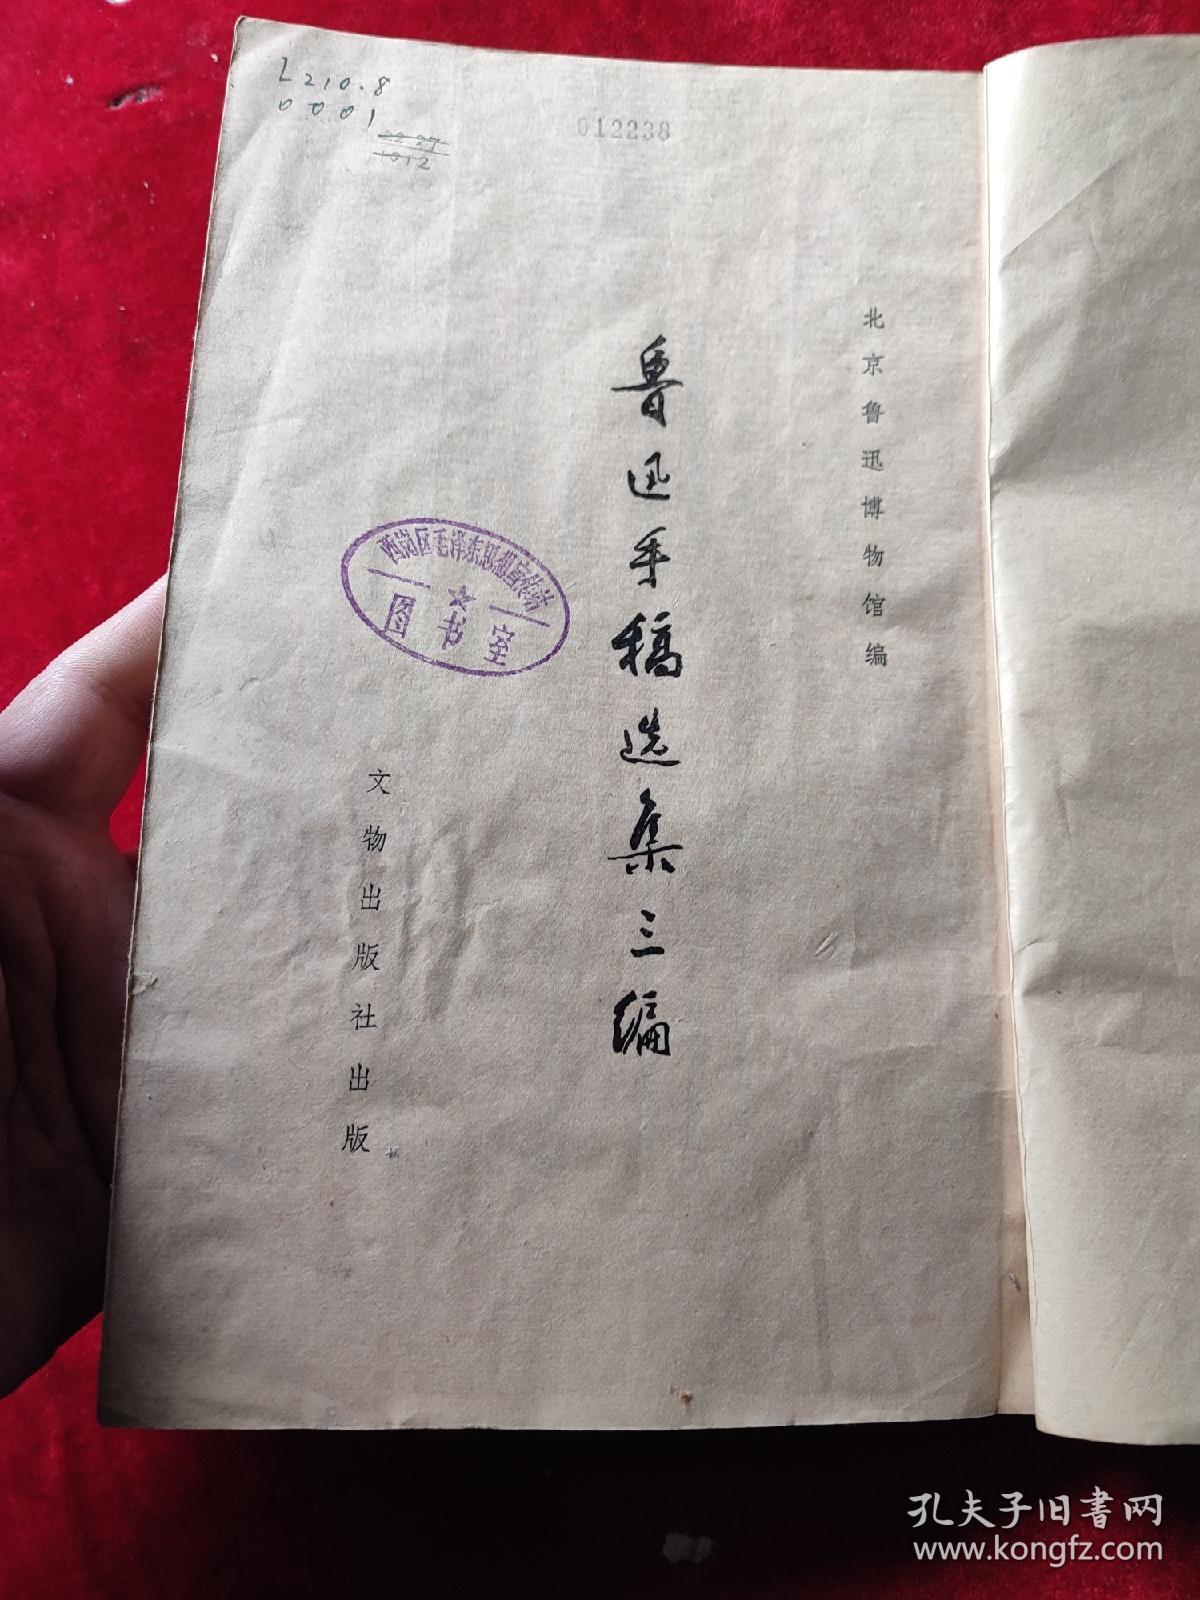 L210.8
0001
1012
012238
北京鲁迅博物馆编
鲁迅手稿选集三编
西岗区毛泽东思想宣传站
图书室
文物出版社出版
孔夫子旧書网
www.kongfz.com